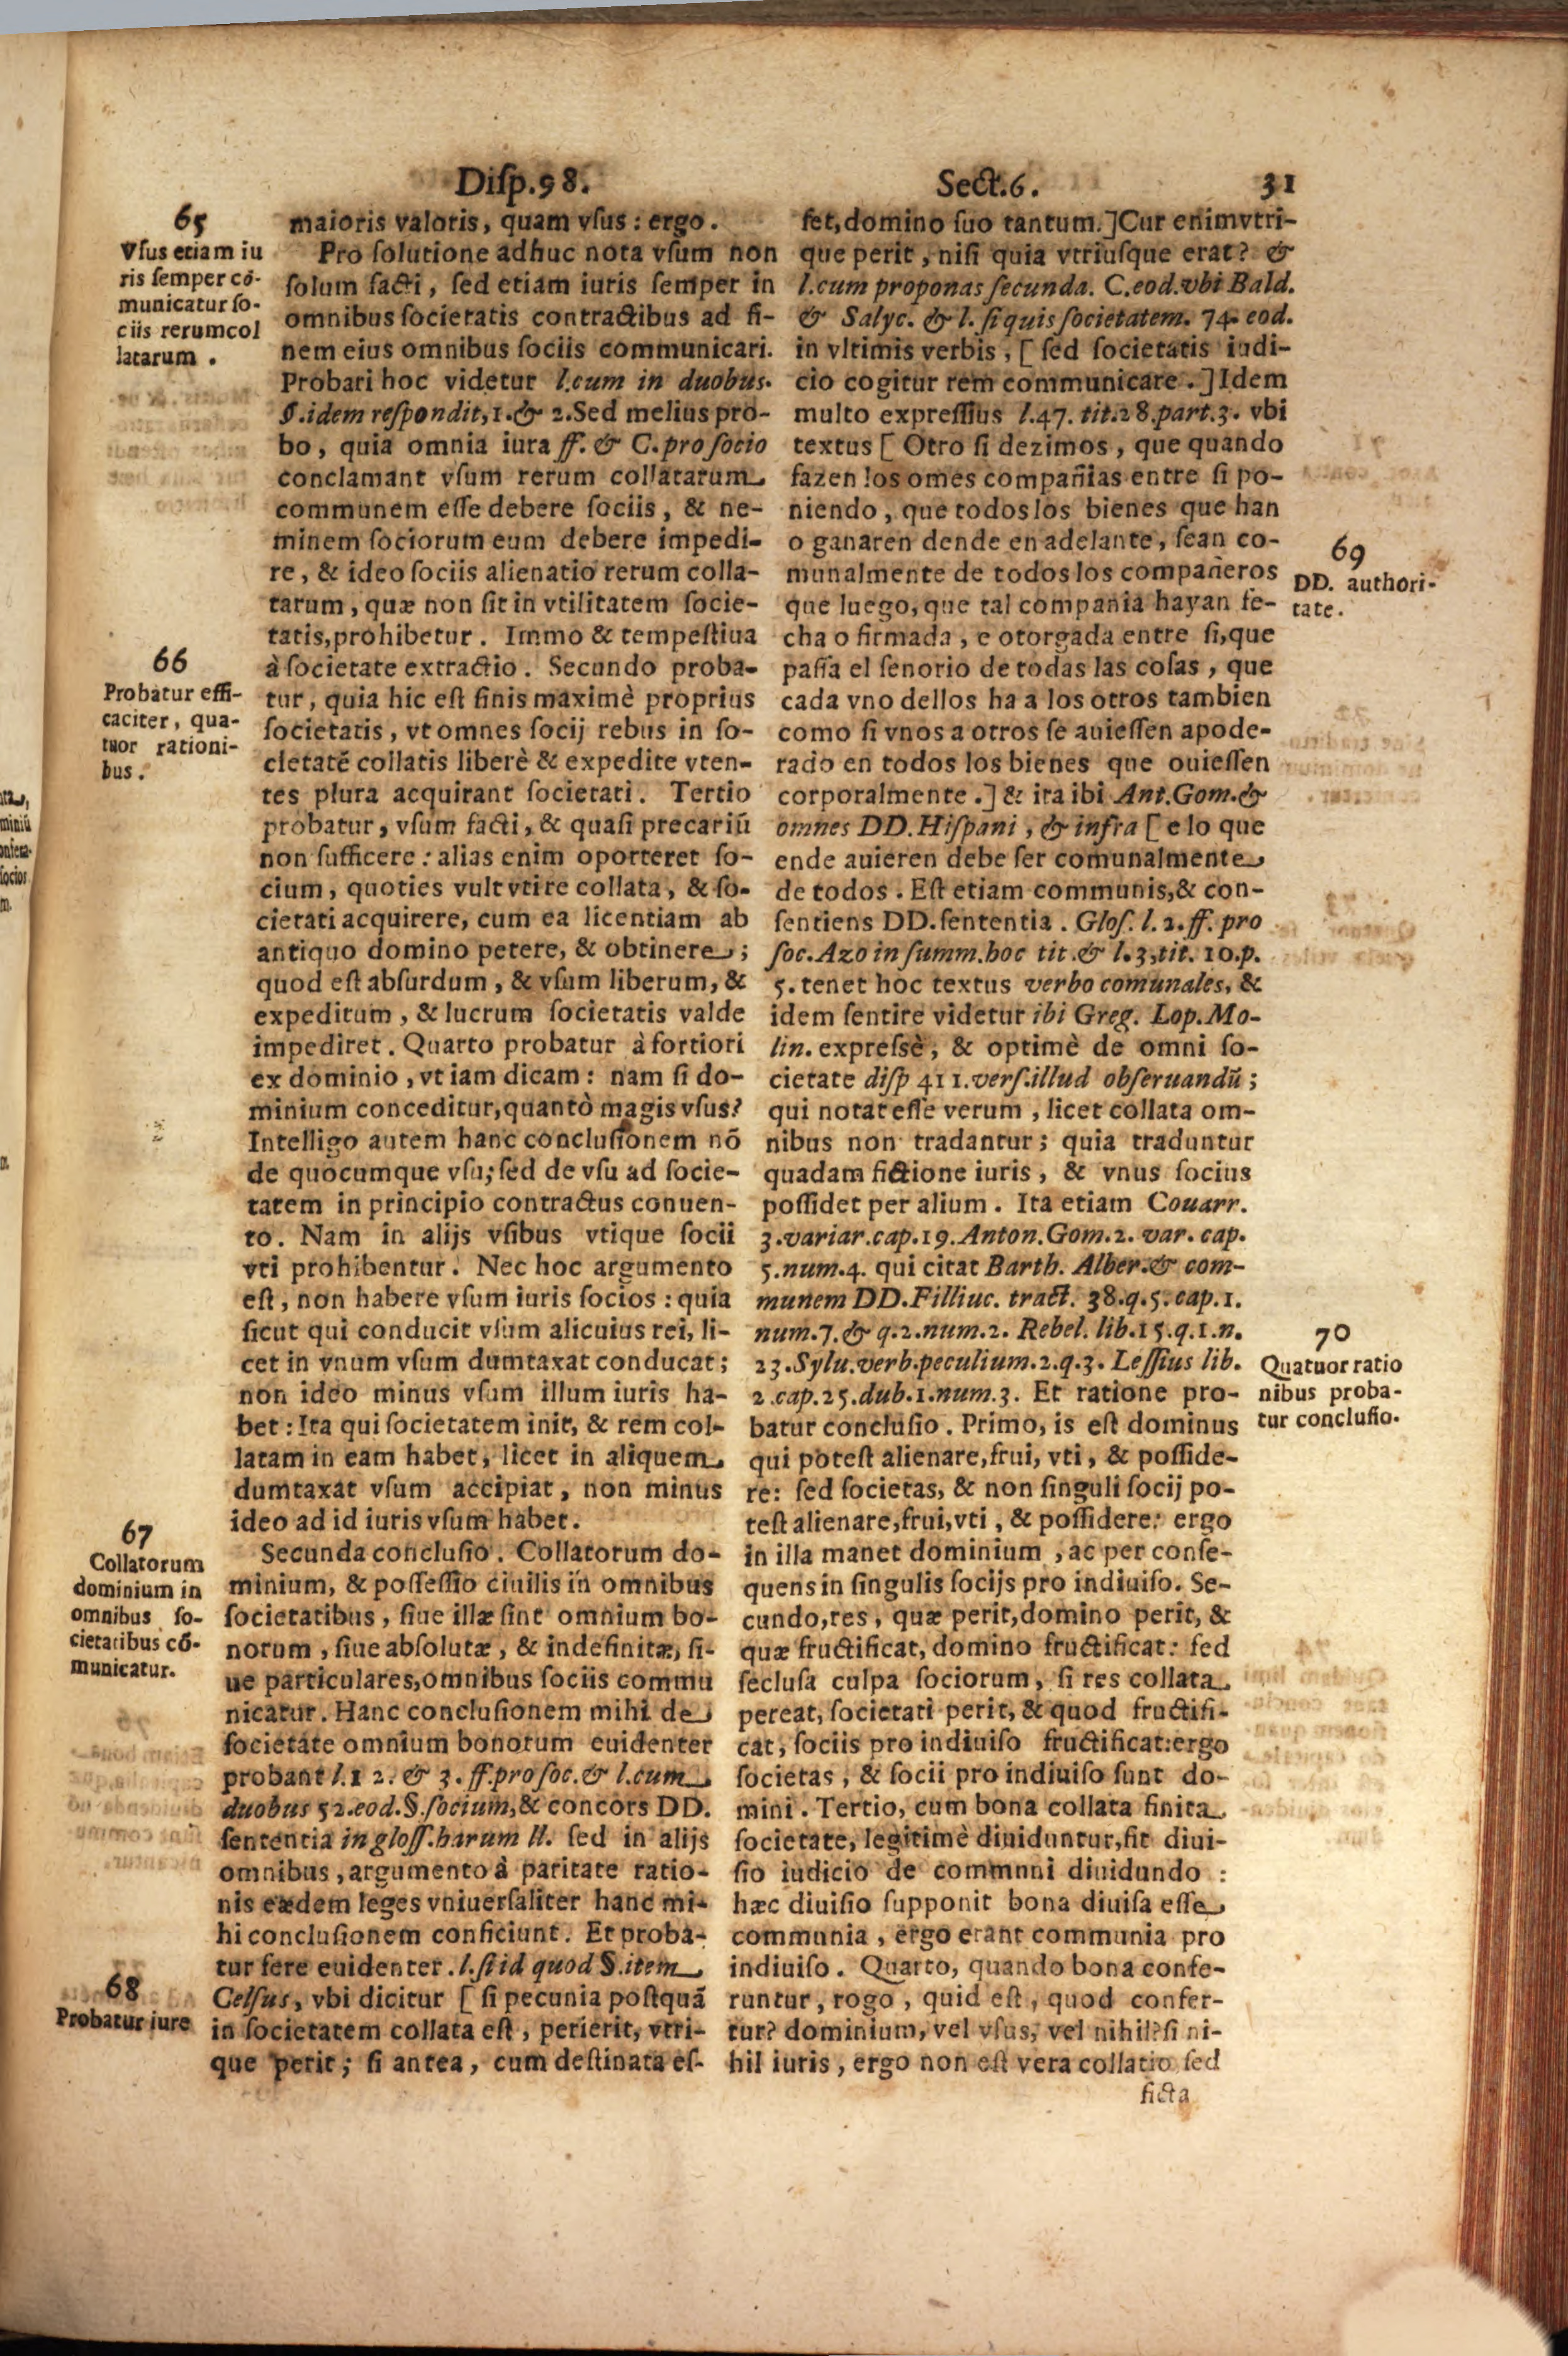 Diſp.98.
Sect.6.
31
65
Vſus etiam iu
ris ſemper cō-
municatur ſo-
ciis rerumcol
latarum .
66
Probatur effi-
caciter, qua-
tuor rationi-
bus.
67
Collatorum
dominium in
omnibus ſo-
cietatibus cō-
municatur.
68
Probatur iure
maioris valoris, quam vſus : ergo.
Pro ſolutione adhuc nota vſum non
ſolum facti, ſed etiam iuris ſemper in
omnibus ſocietatis contractibus ad fi-
nem eius omnibus ſociis communicari.
Probari hoc videtur l.cum in duobus.
§.idem reſpondit,1.& 2.Sed melius pro-
bo, quia omnia iura ff. & C.pro ſocio
conclamant vſum rerum collatarum
communem eſſe debere ſociis, & ne-
minem ſociorum eum debere impedi-
re, & ideo ſociis alienatio rerum colla-
tarum, quæ non ſit in vtilitatem ſocie-
tatis,prohibetur. Immo & tempeſtiua
à ſocietate extractio. Secundo proba-
tur, quia hic eſt finis maximè proprius
ſocietatis, vt omnes ſocij rebus in ſo-
cietatē collatis liberè & expedite vten-
tes plura acquirant ſocietati. Tertio
probatur, vſum facti, & quaſi precariū
non ſufficere : alias enim oporteret ſo-
cium, quoties vult vti re collata, & ſo-
cietati acquirere, cum ea licentiam ab
antiquo domino petere, & obtinere ;
quod eſt abſurdum, & vſum liberum, &
expeditum, & lucrum ſocietatis valde
impediret. Quarto probatur à fortiori
ex dominio, vt iam dicam : nam ſi do-
minium conceditur,quantò magis vſus?
Intelligo autem hanc concluſionem nō
de quocumque vſu; ſed de vſu ad ſocie-
tatem in principio contractus conuen-
to. Nam in alijs vſibus vtique ſocii
vti prohibentur. Nec hoc argumento
eſt, non habere vſum iuris ſocios : quia
ſicut qui conducit vſum alicuius rei, li-
cet in vnum vſum dumtaxat conducat;
non ideo minus vſum illum iuris ha-
bet : Ita qui ſocietatem init, & rem col-
latam in eam habet, licet in aliquem
dumtaxat vſum accipiat, non minus
ideo ad id iuris vſum habet.
Secunda concluſio. Collatorum do-
minium, & poſſeſſio ciuilis in omnibus
ſocietatibus, ſiue illæ ſint omnium bo-
norum, ſiue abſolutæ, & indefinitæ, ſi-
ue particulares,omnibus ſociis commu
nicatur. Hanc concluſionem mihi de
ſocietate omnium bonorum euidenter
probant l.1 2. & 3. ff.pro ſoc.& l.cum
duobus 52.eod.§.ſocium,& concors DD.
ſententia in gloſſ.harum ll. ſed in alijs
omnibus, argumento à paritate ratio-
nis eædem leges vniuerſaliter hanc mi-
hi concluſionem conficiunt. Et proba-
tur fere euidenter. l.ſi id quod §.item
Celſus, vbi dicitur [ ſi pecunia poſtquā
in ſocietatem collata eſt, perierit, vtri-
que perit; ſi antea, cum deſtinata eſ-
ſet,domino ſuo tantum.]Cur enimvtri-
que perit, niſi quia vtriuſque erat? &
l.cum proponas ſecunda. C.eod.vbi Bald.
& Salyc. & l. ſi quis ſocietatem. 74. eod.
in vltimis verbis, [ ſed ſocietatis iudi-
cio cogitur rem communicare.]Idem
multo expreſſius l.47. tit.28.part.3. vbi
textus [ Otro ſi dezimos, que quando
fazen los omes compañias entre ſi po-
niendo, que todos los bienes que han
o ganaren dende en adelante, ſean co-
munalmente de todos los compañeros
que luego, que tal compania hayan fe-
cha o firmada, e otorgada entre ſi,que
paſſa el ſenorio de todas las coſas, que
cada vno dellos ha a los otros tambien
como ſi vnos a otros ſe auieſſen apode-
rado en todos los bienes que ouieſſen
corporalmente.] & ita ibi Ant.Gom.&
omnes DD.Hiſpani, & infra [ e lo que
ende auieren debe ſer comunalmente
de todos. Eſt etiam communis,& con-
ſentiens DD.ſententia. Gloſ. l. 2.ff.pro
ſoc.Azo in ſumm.hoc tit.& l.3.tit. 10.p.
5. tenet hoc textus verbo comunales, &
idem ſentire videtur ibi Greg. Lop.Mo-
lin. expreſsè, & optimè de omni ſo-
cietate diſp 411.verſ.illud obſeruandū;
qui notat eſſe verum, licet collata om-
nibus non tradantur; quia traduntur
quadam fictione iuris, & vnus ſocius
poſſidet per alium. Ita etiam Couarr.
3.variar.cap.19.Anton.Gom.2. var. cap.
5.num.4. qui citat Barth. Alber.& com-
munem DD.Filliuc. tract. 38.q.5.cap.1.
num.7.& q.2.num.2. Rebel. lib.15.q.1.n.
23.Sylu.verb.peculium.2.q.3. Leſſius lib.
2.cap.25.dub.1.num.3. Et ratione pro-
batur concluſio. Primo, is eſt dominus
qui poteſt alienare,frui, vti, & poſſide-
re: ſed ſocietas, & non ſinguli ſocij po-
teſt alienare,frui,vti, & poſſidere: ergo
in illa manet dominium, ac per conſe-
quens in ſingulis ſocijs pro indiuiſo. Se-
cundo,res, quæ perit,domino perit, &
quæ fructificat, domino fructificat: ſed
ſecluſa culpa ſociorum, ſi res collata
pereat, ſocietati perit, & quod fructifi-
cat, ſociis pro indiuiſo fructificat:ergo
ſocietas, & ſocii pro indiuiſo ſunt do-
mini. Tertio, cum bona collata finita
ſocietate, legitimè diuiduntur,fit diui-
ſio iudicio de commnni diuidundo :
hæc diuiſio ſupponit bona diuiſa eſſe
communia, ergo erant communia pro
indiuiſo. Quarto, quando bona confe-
runtur, rogo, quid eſt, quod confer-
tur? dominium, vel vſus, vel nihil?ſi ni-
hil iuris, ergo non eſt vera collatio ſed
ficta
69
DD. authori-
tate.
70
Quatuor ratio
nibus proba-
tur concluſio.